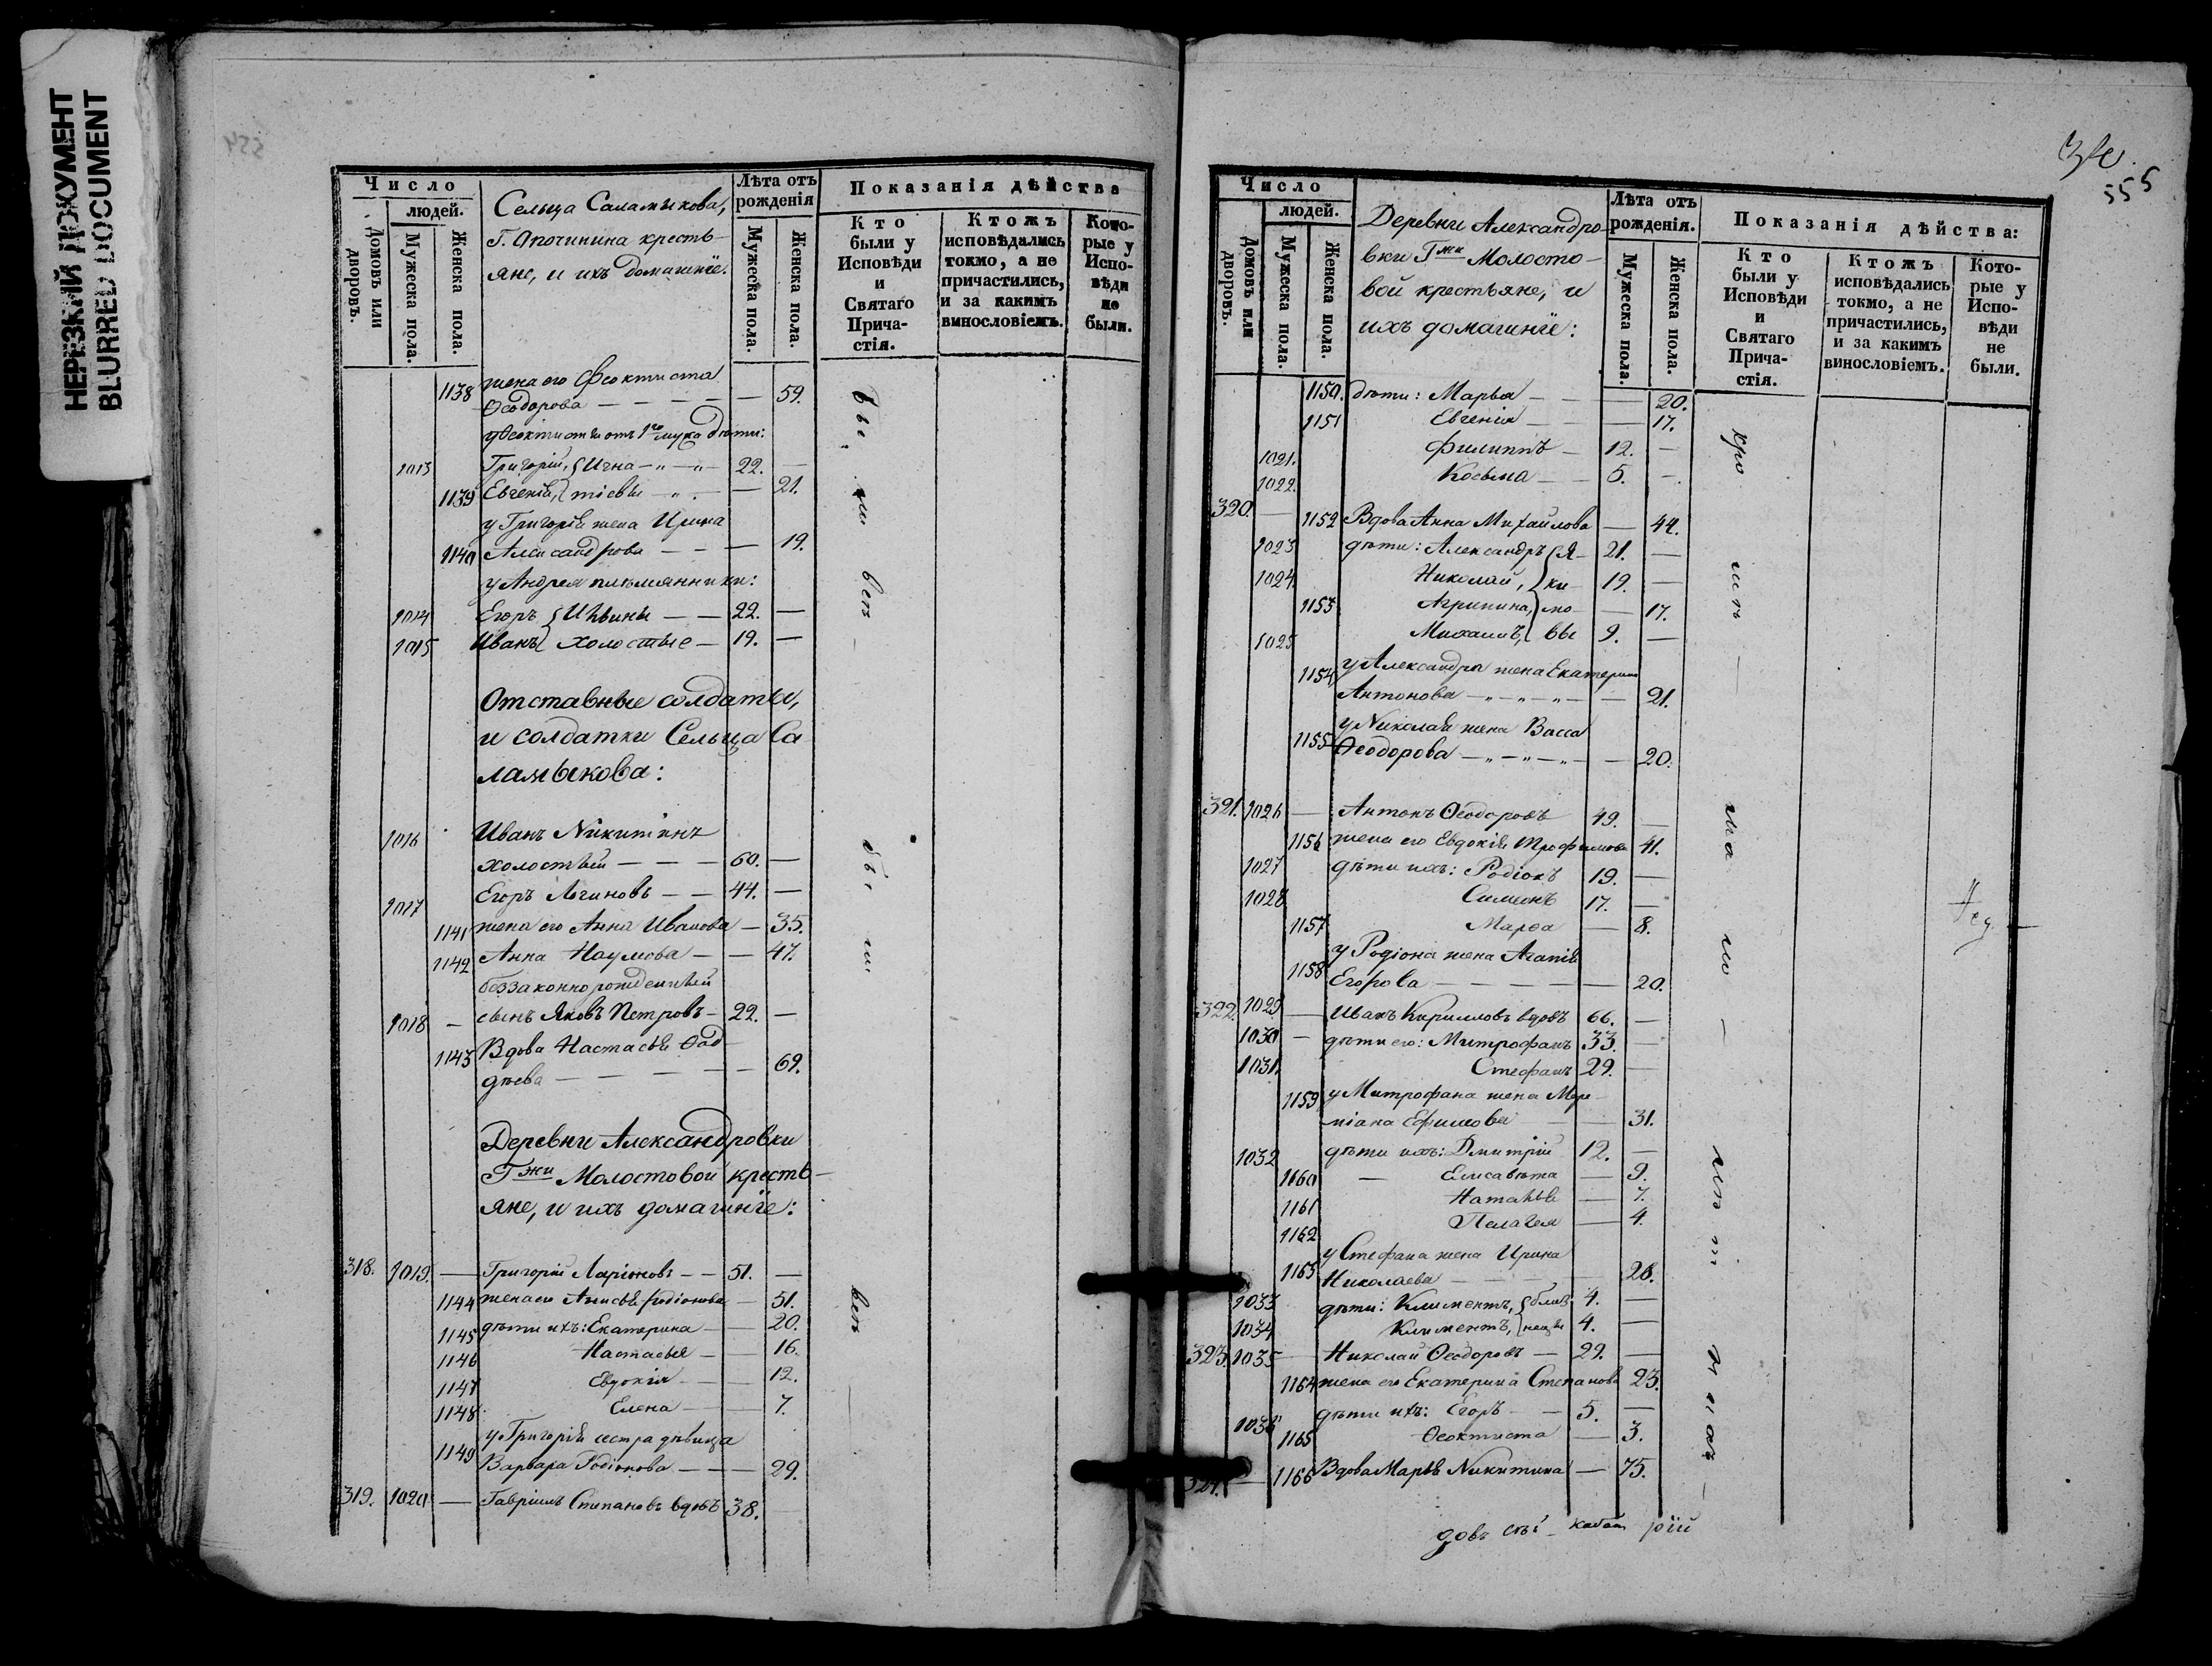 НЕРЕЗКИЙ ДОКУМЕНТ
BLURRED DOCUMENT
Число
людей.
Домовъ или дворовъ.
Мужеска пола.
Женска пола.
Сельца Саламыкова,
Г. Опочинина кресть-
яне, и ихъ домашніе.
Лѣта отъ рожденія
Мужеска пола.
Женска пола.
Показанія дѣйства
Кто были у Исповѣди и Святаго Прича-стія.
Ктожъ исповѣдались токмо, а не причастились, и за какимъ винословіемъ.
Кото-рые у Испо-вѣди не были.
1138 жена его Феоктиста
Ѳеодорова — — — — 59.
у Ѳеоктисты отъ 1го мужа дѣти:
1013 Григорій, Игна — 22. —
1139 Евгенія, тіевы — — 21.
у Григорія жена Ирина
1140 Александрова — — — 19.
у Андрея племянники:
1014 Егоръ Ильины — — 22. —
1015 Иванъ холостые — 19. —
Отставные солдаты,
и солдатки Сельца Са
ламыкова:
1016 Иванъ Никитинъ
холостый — — — 60. —
1017 Егоръ Логиновъ — — 44. —
1141 жена его Анна Иванова — 35.
1142 Анна Наумова — — 47.
беззаконнорожденный
1018 — сынъ Яковъ Петровъ — 22. —
1143 Вдова Настасья Ѳад
дѣева — — — — — 69.
Деревни Александровки
Гжи Молостовой кресть—
яне, и ихъ домашніе:
318. 1019. — Григорій Ларіоновъ — — 51. —
1144 жена его Анисья Родіонова — 51.
1145 дѣти ихъ: Екатерина — — 20.
1146 Настасья — — 16.
1147 Евдокія — — 12.
1148 Елена — — 7.
у Григорія сестра дѣвица
1149 Варвара Родіонова — — — 29.
319. 1020 — Гавріилъ Степановъ вдовъ 38. —
555
Число
людей.
Домовъ или дворовъ.
Мужеска пола.
Женска пола.
Деревни Александро-
вки Гжи Молосто-
вой крестьяне, и
ихъ домашніе:
Лѣта отъ рожденія.
Мужеска пола.
Женска пола.
Показанія дѣйства:
Кто были у Исповѣди и Святаго Прича-стія.
Ктожъ исповѣдались токмо, а не причастились, и за какимъ винословіемъ.
Кото-рые у Испо-вѣди не были.
1150. дѣти: Марья — — 20.
1151 Евгенія — — — 17.
1021. Филиппъ — 12. —
1022. Косьма — — 5. —
320. — 1152 Вдова Анна Михайлова — 44.
1023 дѣти: Александръ Я- 21. —
1024 Николай, ки- 19. —
1153 Агрипина, мо- — 17.
1025 Михаилъ, вы 9. —
1154 у Александра жена Екатерина
Антонова — — — 21.
1155 у Николая жена Васса
Ѳеодорова — — — — 20.
321. 1026 — Антонъ Ѳеодоровъ 49. —
1156 жена его Евдокія Трофимова 41.
1027 дѣти ихъ: Родіонъ 19. —
1028 Симеонъ 17. —
1157 Марѳа — 8.
у Родіона жена Агапія
1158 Егорова — — — — — 20.
322. 1029 — Иванъ Кирилловъ вдовъ 66. —
1030 — дѣти его: Митрофанъ 33. —
1031. Стефанъ 29. —
1159 у Митрофана жена Мар
піана Ефимова — — 31.
1032 дѣти ихъ: Дмитрій 12. —
1160 — Елисавета — 9.
1161 Наталья — 7.
1162 Пелагея — 4.
у Стефана жена Ирина
1163 Николаева — — — 26.
1033 дѣти: Климентъ, близ 4. —
1034 Климентъ, нецы 4. —
323. 1035 — Николай Ѳеодоровъ — 29. —
1164 жена его Екатерина Степанова 23.
1036 дѣти ихъ: Егоръ — — 5. —
1165 Ѳеоктиста — 3.
324. — 1166 Вдова Марья Никитина — 75.